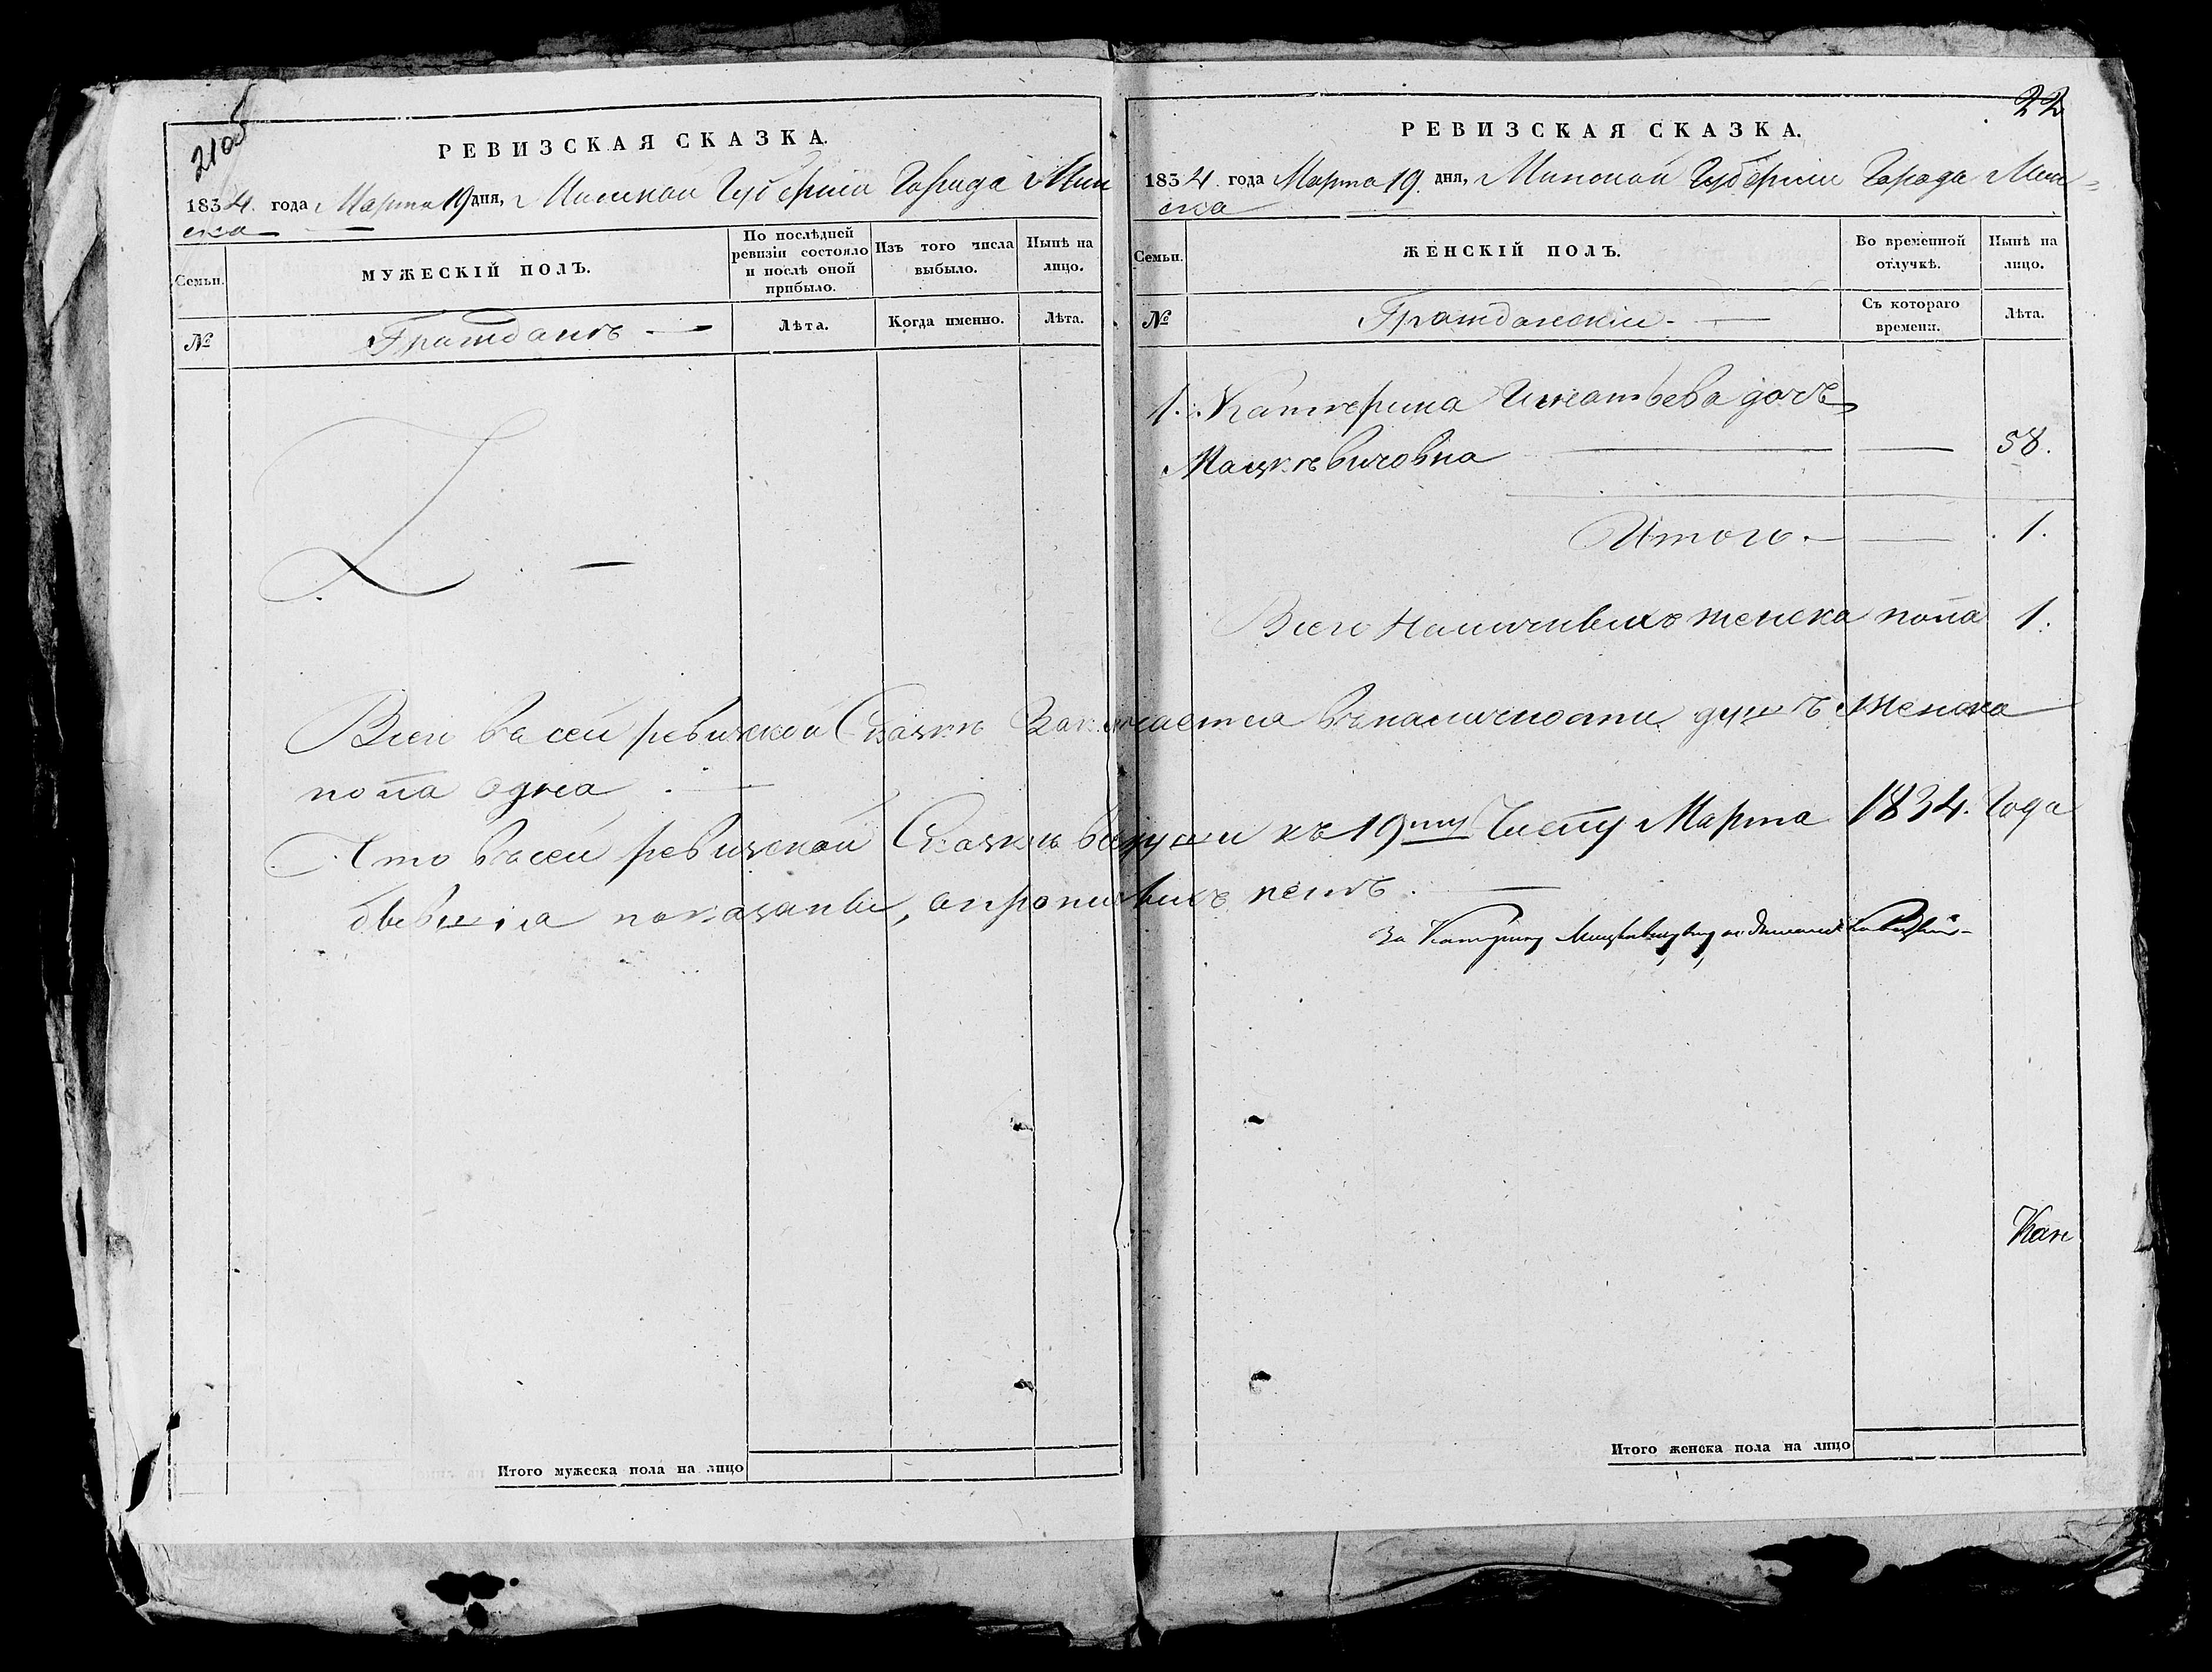 21об
РЕВИЗСКАЯ СКАЗКА.
1834. года Марта 19 дня, Минской Губерніи Города Мин
ска
Семьи.
МУЖЕСКІЙ ПОЛЪ.
По послѣдней ревизіи состояло и послѣ оной прибыло.
Изъ того числа выбыло.
Нынѣ на лицо.
№
Граждане
Лѣта.
Когда именно.
Лѣта.
22
РЕВИЗСКАЯ СКАЗКА.
1834. года Марта 19. дня, Минской Губерніи Города Мин=
ска
Семьи.
ЖЕНСКІЙ ПОЛЪ.
Во временной отлучкѣ.
Нынѣ на лицо.
№
Гражданскіи
Съ котораго времени.
Лѣта.
1. Катерина Игнатьева дочь
Мацкевичовна 58.
Итого. 1.
Всего наличныхъ женска пола 1.
Всего въ сей ревизской Сказкѣ Заключается въ наличности душъ женска
пола одна.
Что въ сей ревизской Сказкѣ все души къ 19му Числу Марта 1834. Года
бывшіа показаны, а прописныхъ нетъ.
За Катерину Мацкевичувну
Кан
Итого мужеска пола на лицо
Итого женска пола на лицо